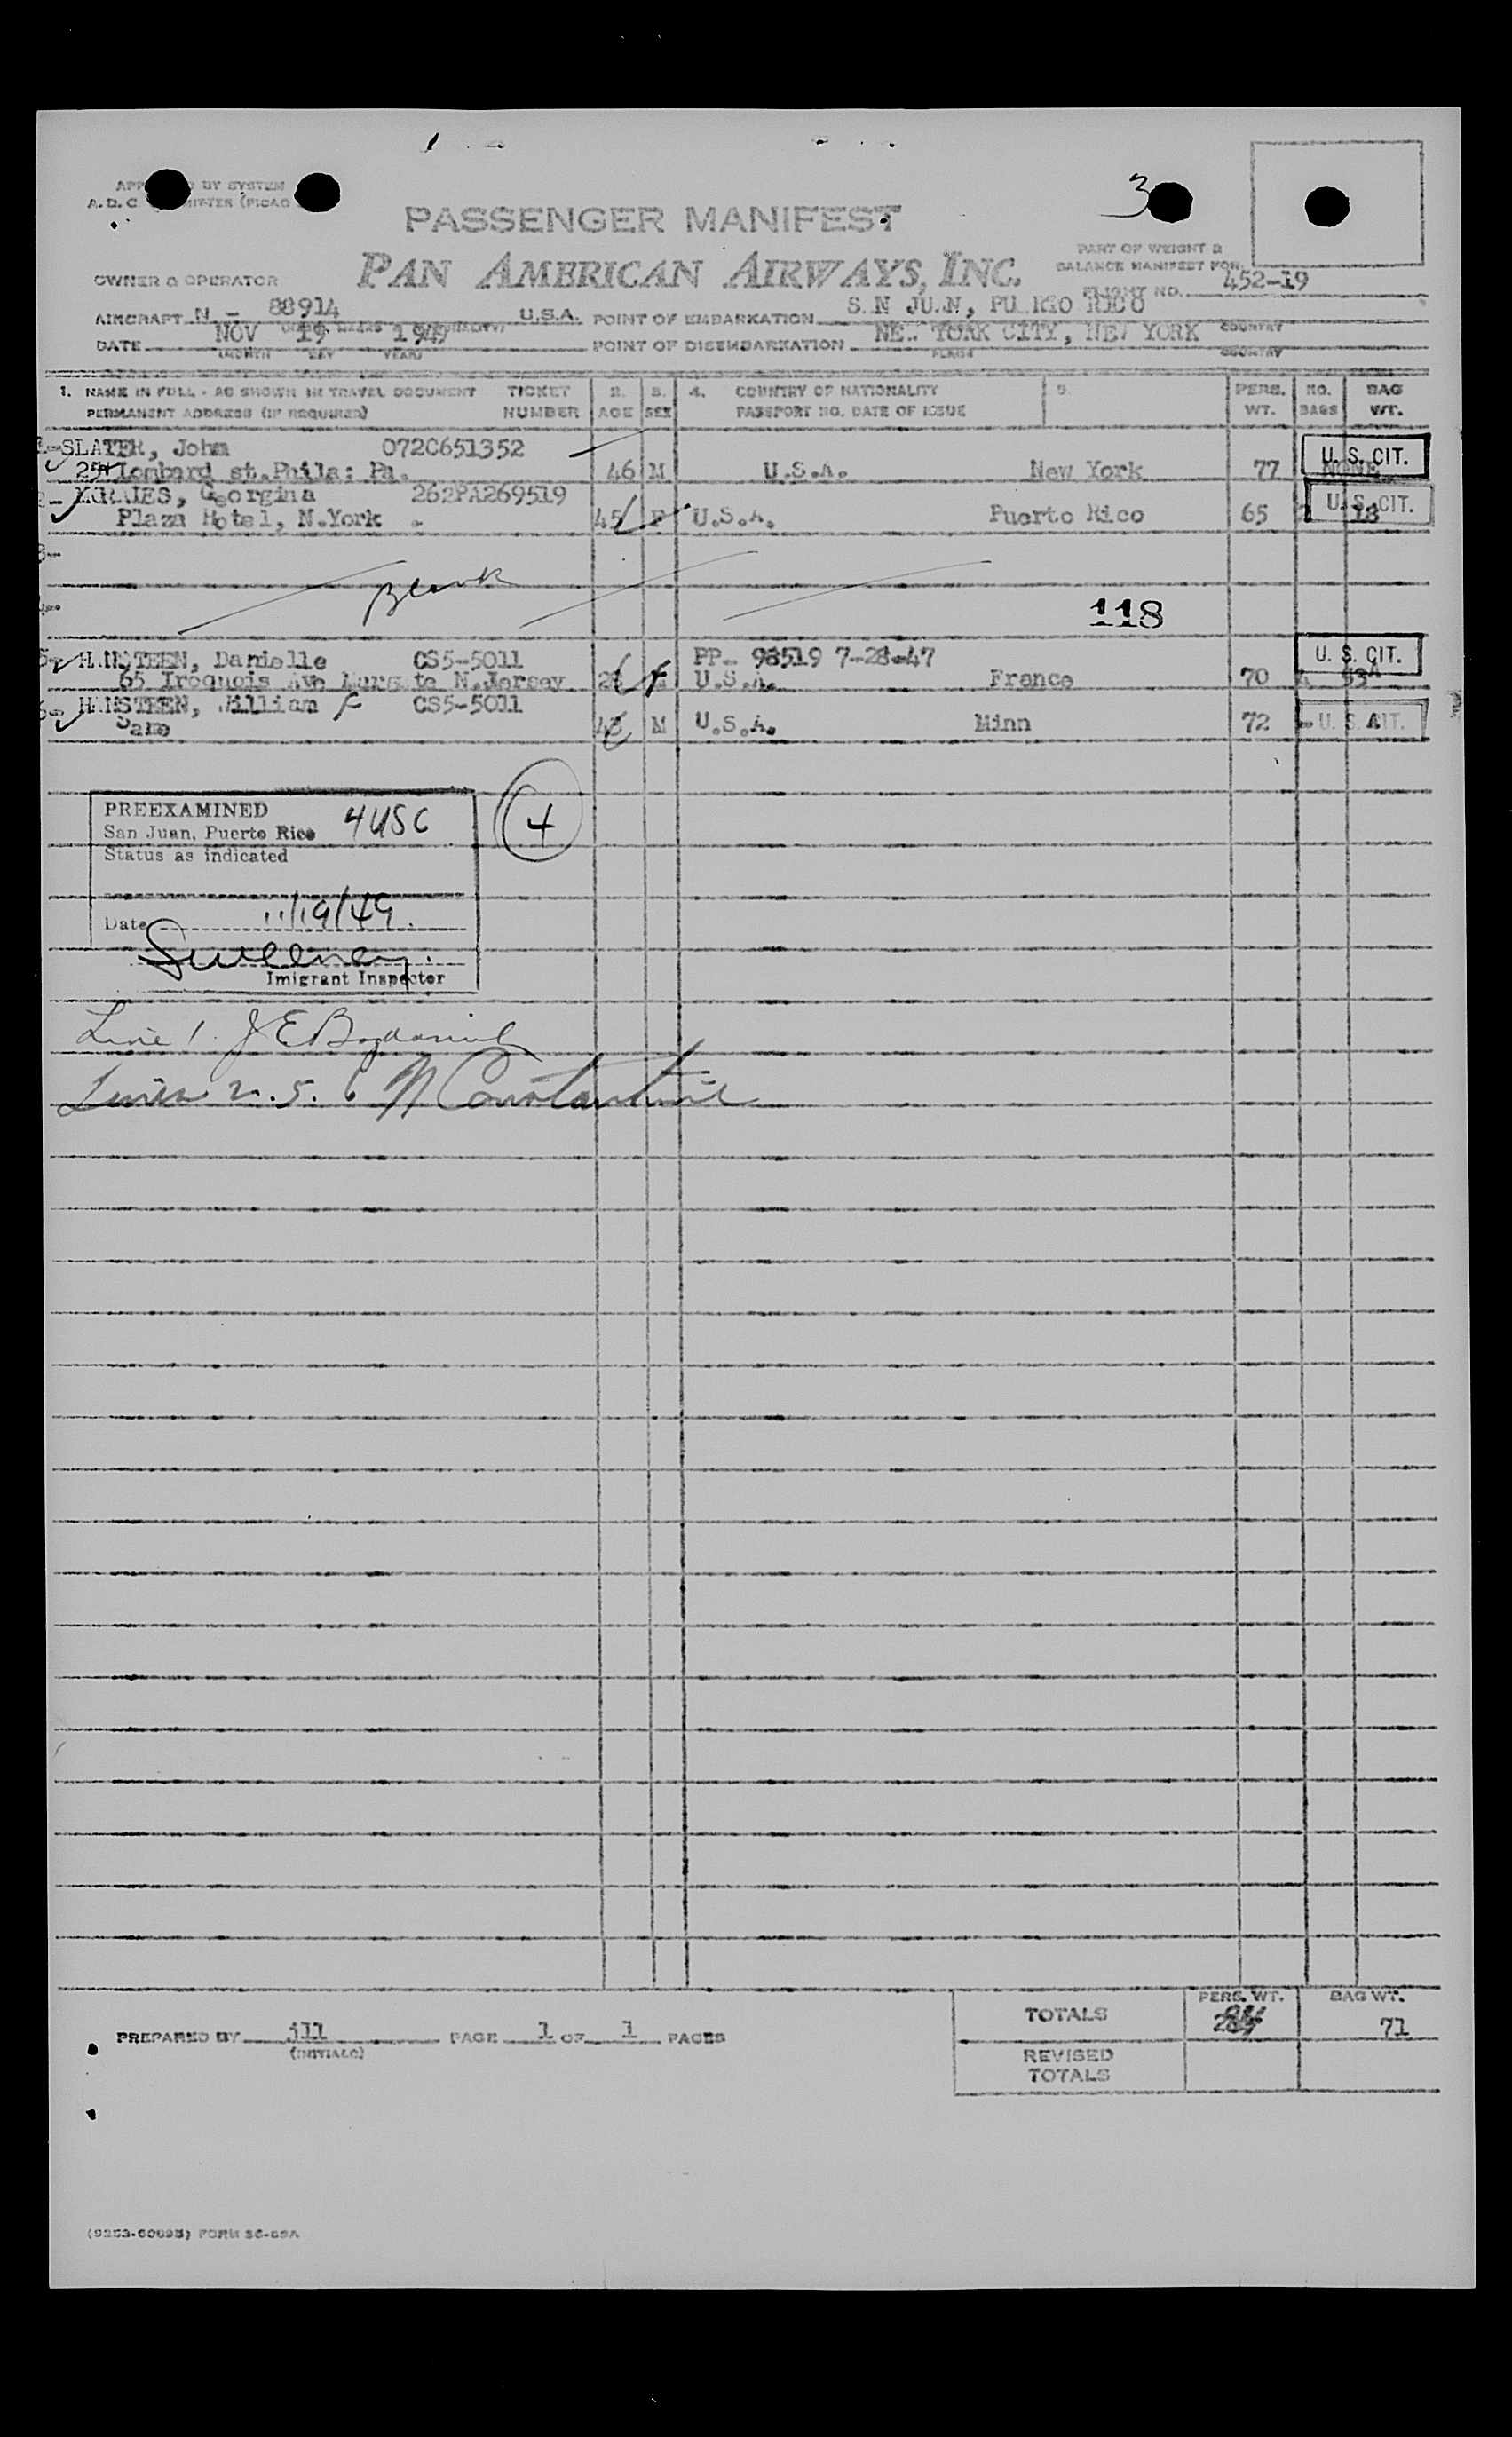 3
BY SYSTEM
A.D.C.
PASSENGER MANIFEST
PART OF WEIGHT &
BALANCE MANIFEST FOR
OWNER & OPERATOR PAN AMERICAN AIRWAYS, INC.
FLIGHT NO. 452-19
AIRCRAFT N - 88914 U.S.A. POINT OF EMBARKATION S.N JU.N, PU.RTO RICO
COUNTRY
DATE NOV 19 1949 POINT OF DISEMBARKATION NE. YORK CITY, NEW YORK
(MONTH DAY YEAR) PLACE COUNTRY
1. NAME IN FULL - AS SHOWN IN TRAVEL DOCUMENT TICKET 2. 3. 4. COUNTRY OF NATIONALITY 5. PERS. NO. BAG
PERMANENT ADDRESS (IF REQUIRED) NUMBER AGE SEX PASSPORT NO. DATE OF ISSUE WT. BAGS WT.
SLATER, John 072C651352
Lombard st.Phila: Pa. 46 M U.S.A. New York 77 NONE U. S. CIT.
Georgina 262PA269519
Plaza Hotel, N.York . 45 F U.S.A. Puerto Rico 65 18 U. S. CIT.
3-
Blank
118
5- H.NSTEEN, Danielle CS5-5011 PP- 98519 7-28-47 U. S. CIT.
65 Iroquois Ave Margate N.Jersey F U.S.A. France 70 53
6- HANSTEEN, William F CS5-5011
Same M U.S.A. Minn 72 U. S. CIT.
PREEXAMINED
San Juan, Puerto Rico 4USC
Status as indicated
4
Date 11/19/49
Sweeney
Imigrant Inspector
Line 1. J E
Lines 2. 5. 6 N Constantine
TOTALS PERS. WT. BAG WT.
71
PREPARED BY jll PAGE 1 OF 1 PAGES
(INITIALS)
REVISED
TOTALS